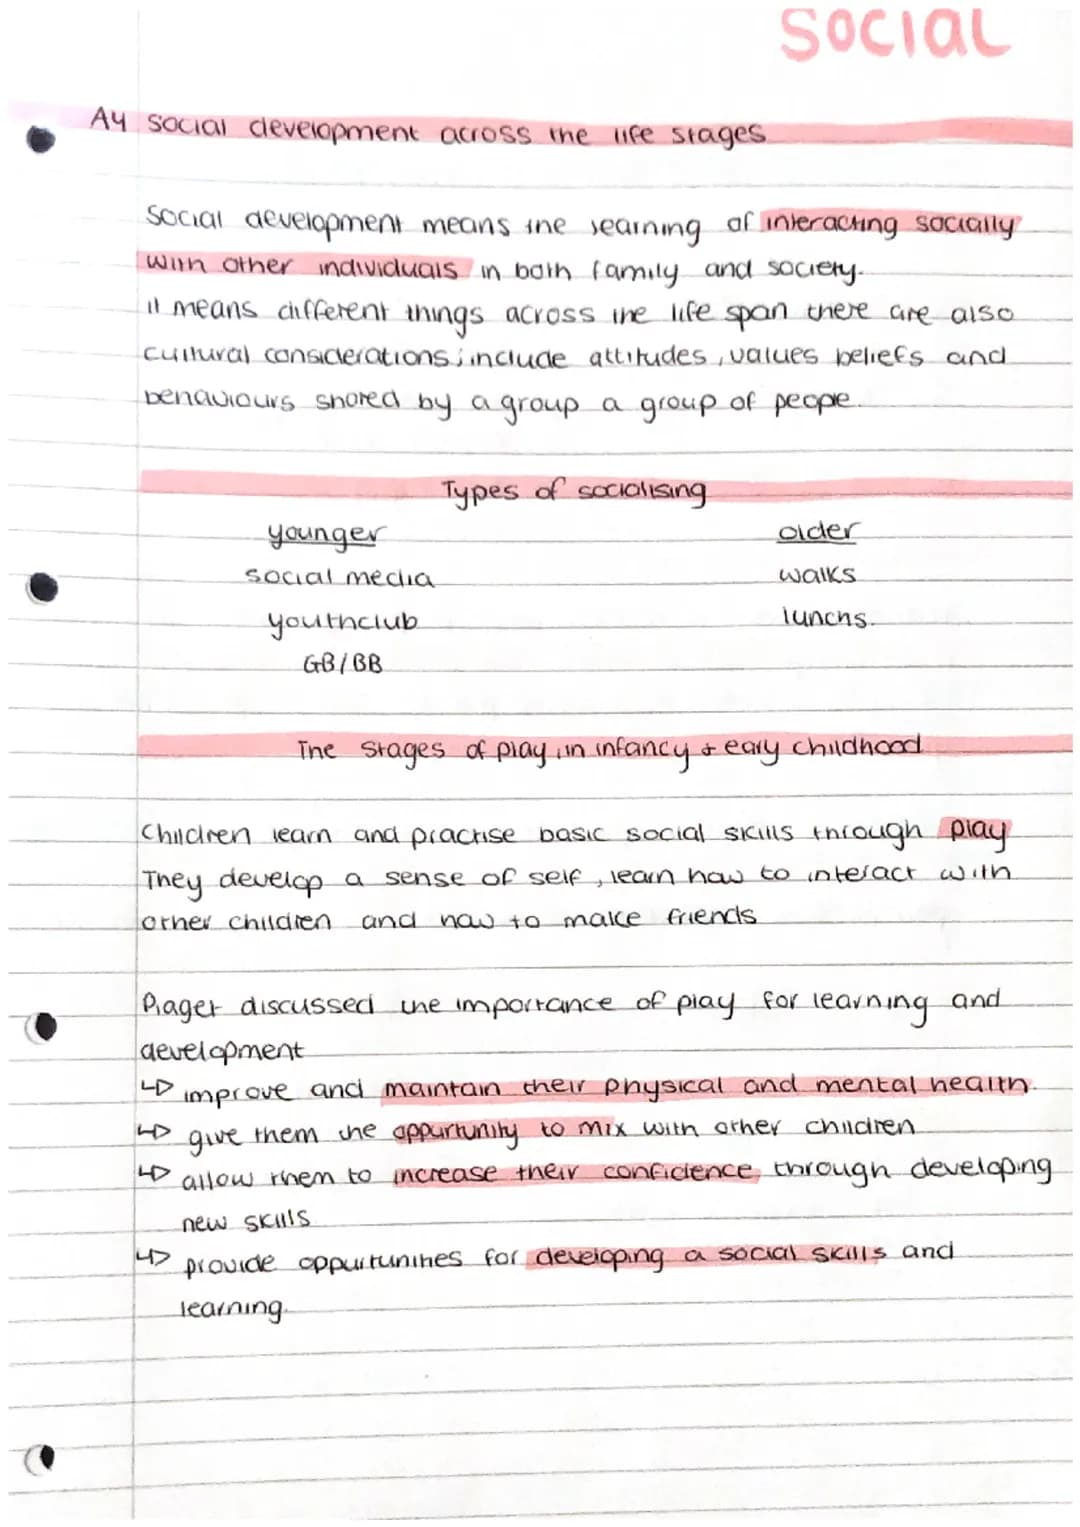 SOCIAL
A4 social development across the life stages
Social development means the learning of interacting socially
with other individuals in both family and society.
it means different things across the life span there are also
cultural considerations; include attitudes, values beliefs and
behaviours shared by a group a group of people.
Types of socialising
younger older
social media walks
youthclub lunchs.
GB/BB
The stages of play in infancy & early childhood
Children learn and practise basic social skills through play
They develop a sense of self, learn how to interact with
other children and how to make friends
Piaget discussed the importance of play for learning and
development
↳ improve and maintain their physical and mental health.
↳ give them the oppurtunity to mix with other children
↳ allow them to increase their confidence, through developing
new skills
↳ provide oppurtunities for developing a social skills and
learning.